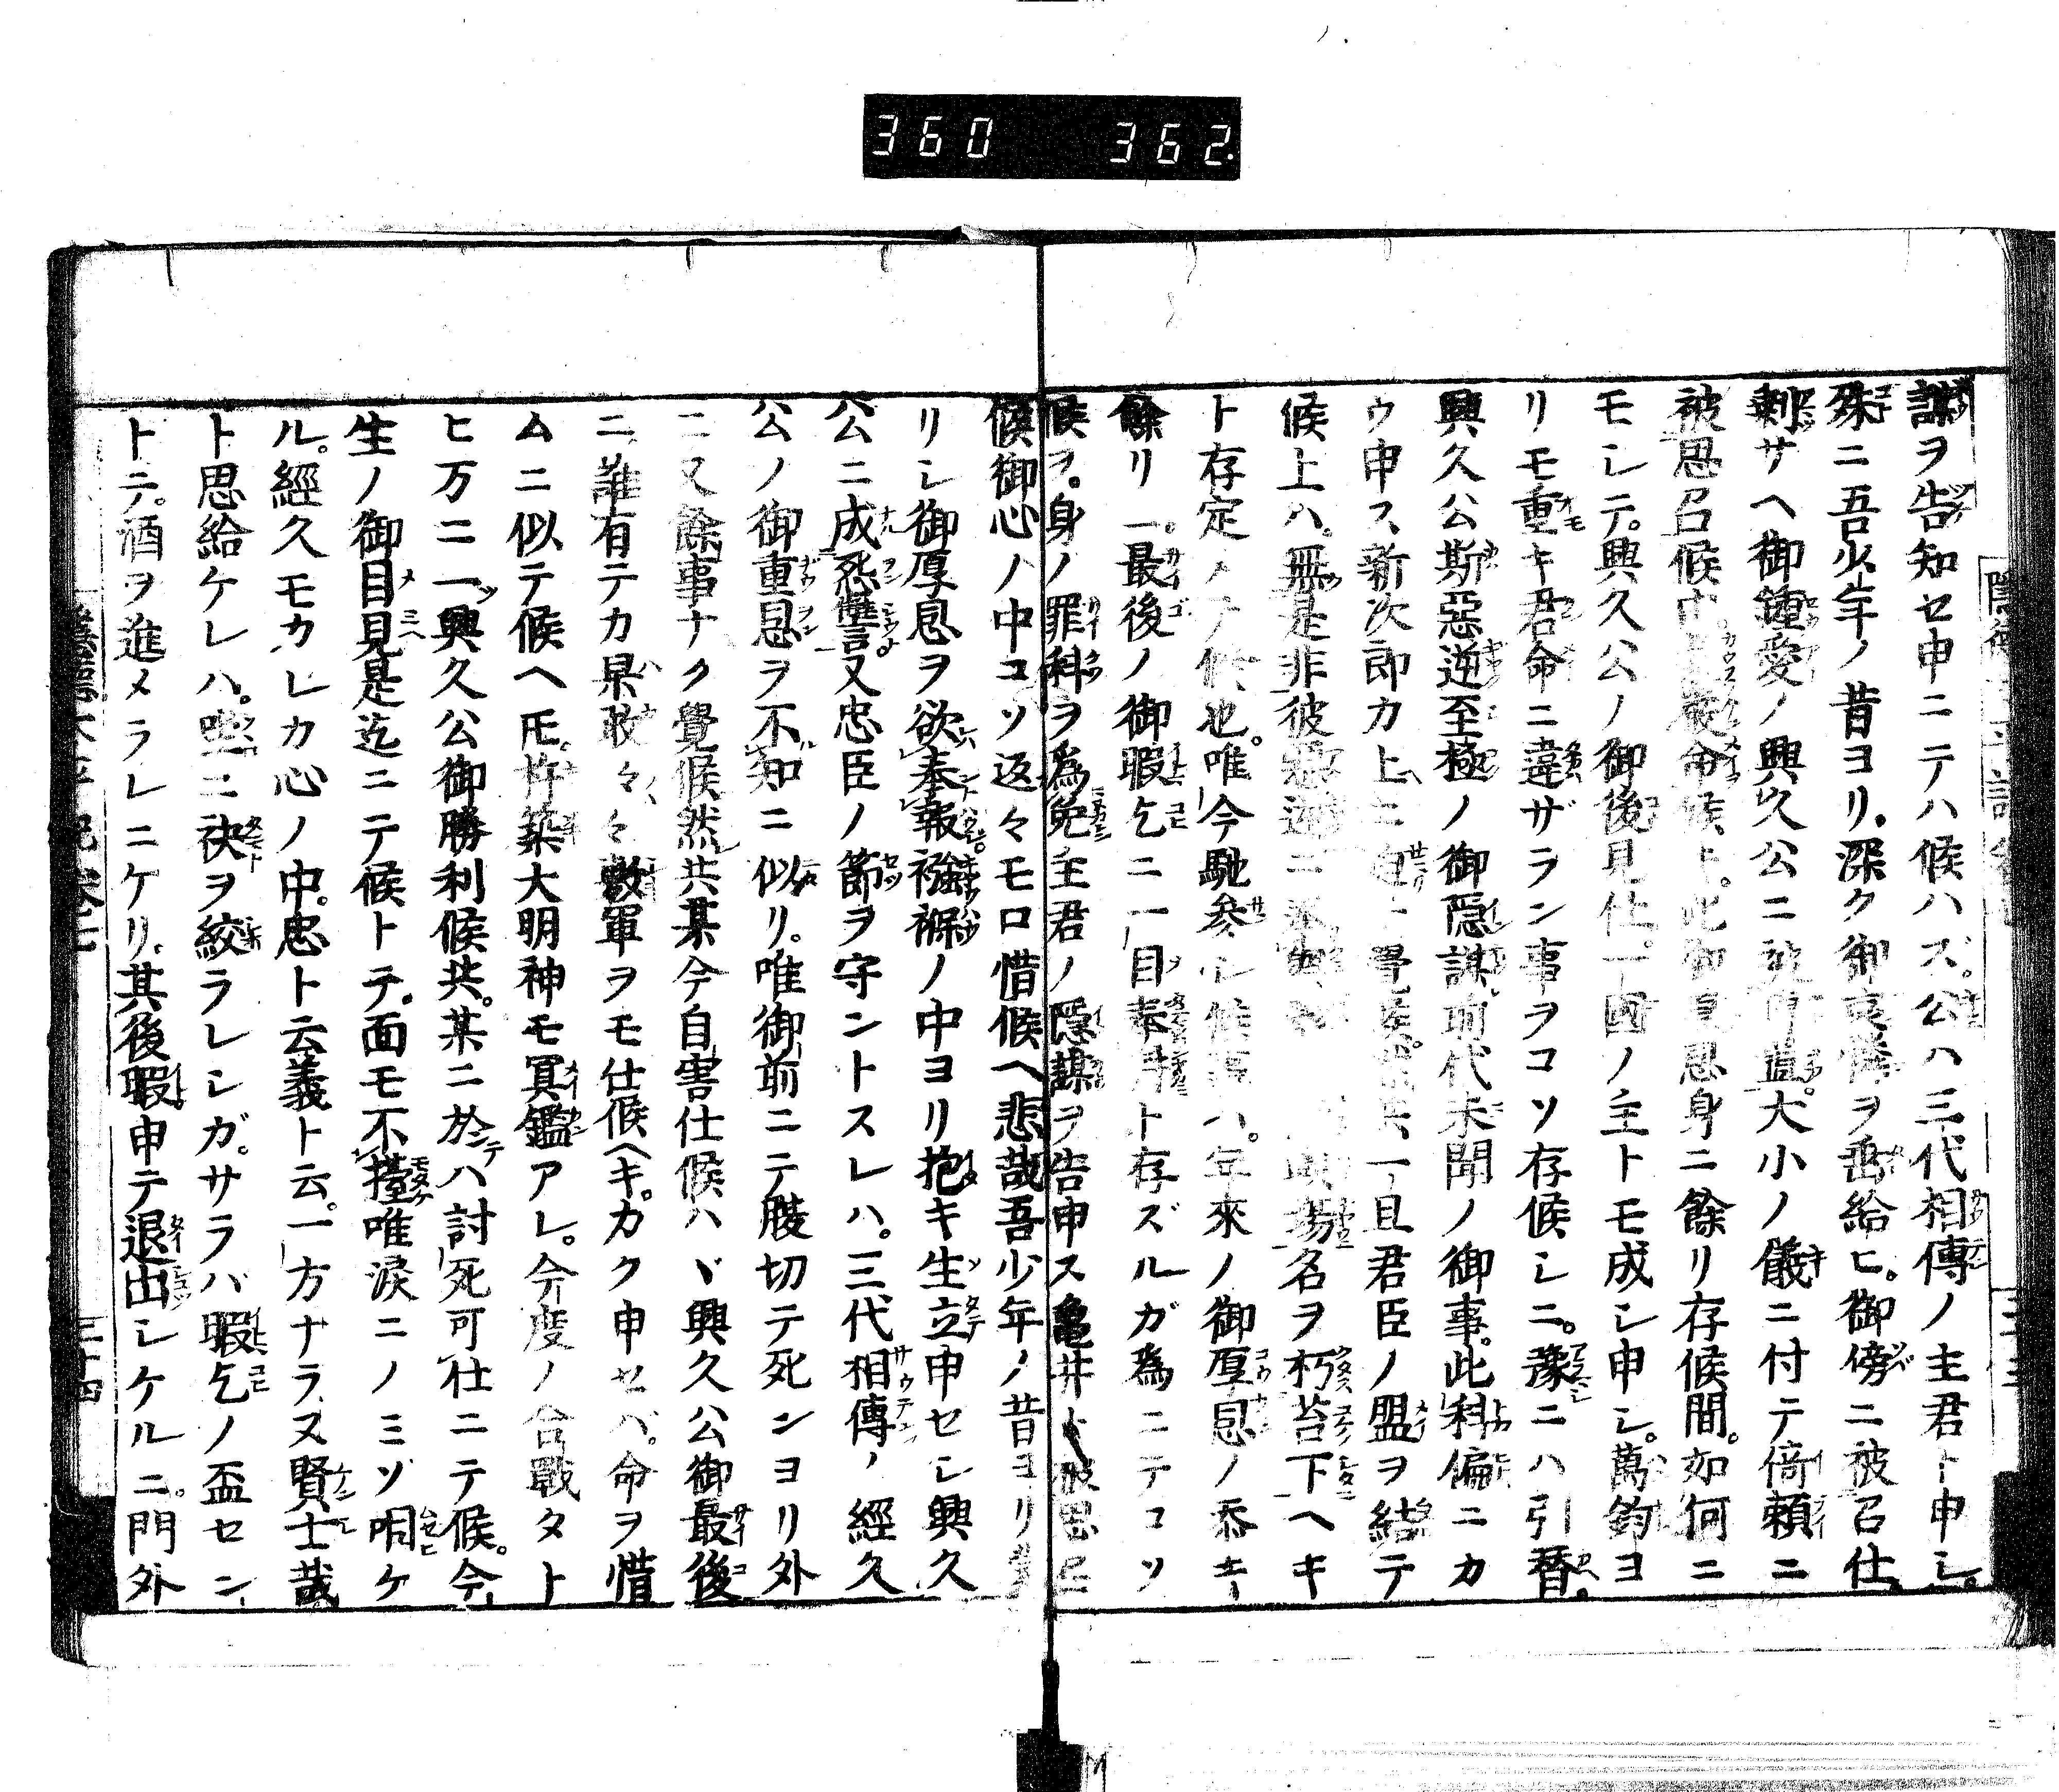 360 362
謀ヲ告知セ申ニテハ候ハズ。公ハ三代相傳ノ主君ト申シ。
殊ニ吾少年ノ昔ヨリ。深ク御哀憐ヲ垂給ヒ。御傍ニ被召仕。
剰サヘ御鍾愛ノ興久公ニ被 大小ノ儀ニ付テ倚頼ニ
被思召候 命候上。此御 恩身ニ餘リ存候間。如何ニ
モシテ。興久公ノ御後見仕。一國ノ主トモ成シ申シ。萬鈞ヨ
リモ重キ君命ニ違ザラン事ヲコソ存候シニ。豫ニハ引替。
興久公斯惡逆至極ノ御隠謀。前代未聞ノ御事。此科偏ニカ
ウ申ス新次郎カ上ニ 一旦君臣ノ盟ヲ結テ
候上ハ。無是非彼惡逆ニ 場名ヲ朽苔下ヘキ
ト存定 候也。唯今馳參シ候 ハ。年來ノ御厚恩ノ忝キ
餘リ。最後ノ御暇乞ニ一目奉拜ト存ズルガ為ニテコソ
候ヲ。身ノ罪科ヲ為免主君ノ隠謀ヲ告申ス亀井ト被思召
候御心ノ中コソ返々モ口惜候ヘ悲哉吾少年ノ昔ヨリ
リシ御厚恩ヲ欲奉報襁褓ノ中ヨリ抱キ生立申セシ興久
公ニ成怨讐。又忠臣ノ節ヲ守ントスレハ。三代相傳ノ經久
公ノ御重恩ヲ不知ニ似リ。唯御前ニテ腹切テ死ンヨリ外
ニ又餘事ナク覺候然共某今自害仕候ハヾ興久公御最後
ニ誰有テカ果敢々々敷軍ヲモ仕候ヘキ。カク申セバ。命ヲ惜
ムニ似テ候ヘ𪜈。杵築大明神モ冥鑑アレ。今度ノ合戰タト
ヒ万ニ一興久公御勝利候共。某ニ於テハ討死可仕ニテ候。今
生ノ御目見是迄ニテ候トテ。面モ不擡唯淚ニノミゾ咽ケ
ル。經久モカレカ心ノ中。忠ト云義ト云。一方ナラヌ賢士哉
ト思給ケレハ。坐ニ袂ヲ絞ラレシガ。サラバ暇乞ノ盃セン
トテ。酒ヲ進メラレニケリ。其後暇申テ退出シケルニ。門外